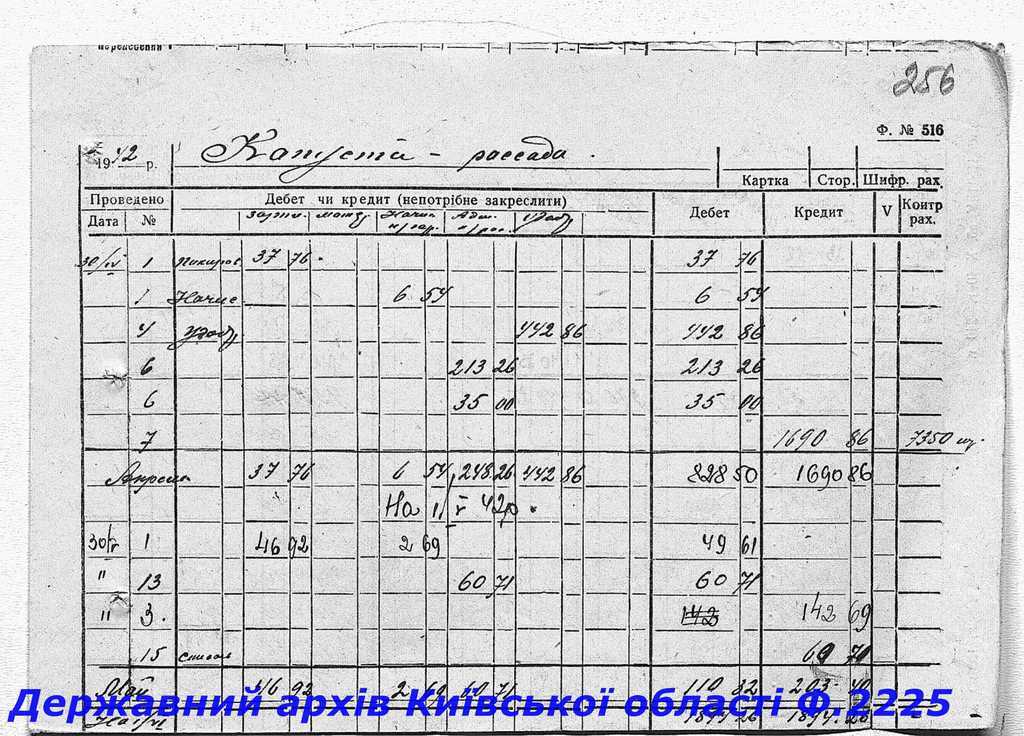 256
Ф. № 516
1942 р. Капуста – рассада.
Картка Стор. Шифр. рах.
Проведено Дебет чи кредит (непотрібне закреслити) Дебет Кредит V Контр рах.
Дата №
30/IV 1 37 76 37 76
1 Начис 6 54 6 54
4 Удобр 442 86 442 86
6 213 26 213 26
6 35 00 35 00
7 1690 86 7350 шт.
Апрель 37 76 6 54 248 26 442 86 828 50 1690 86
На 1/V 42р.
30/V 1 46 92 2 69 49 61
" 13 60 71 60 71
" 3. 142 142 69
15 списан 60 71
Май 46 92 2 69 60 71 110 82 203 40
1894 26 1894 26
Державний архів Київської області Ф.2225